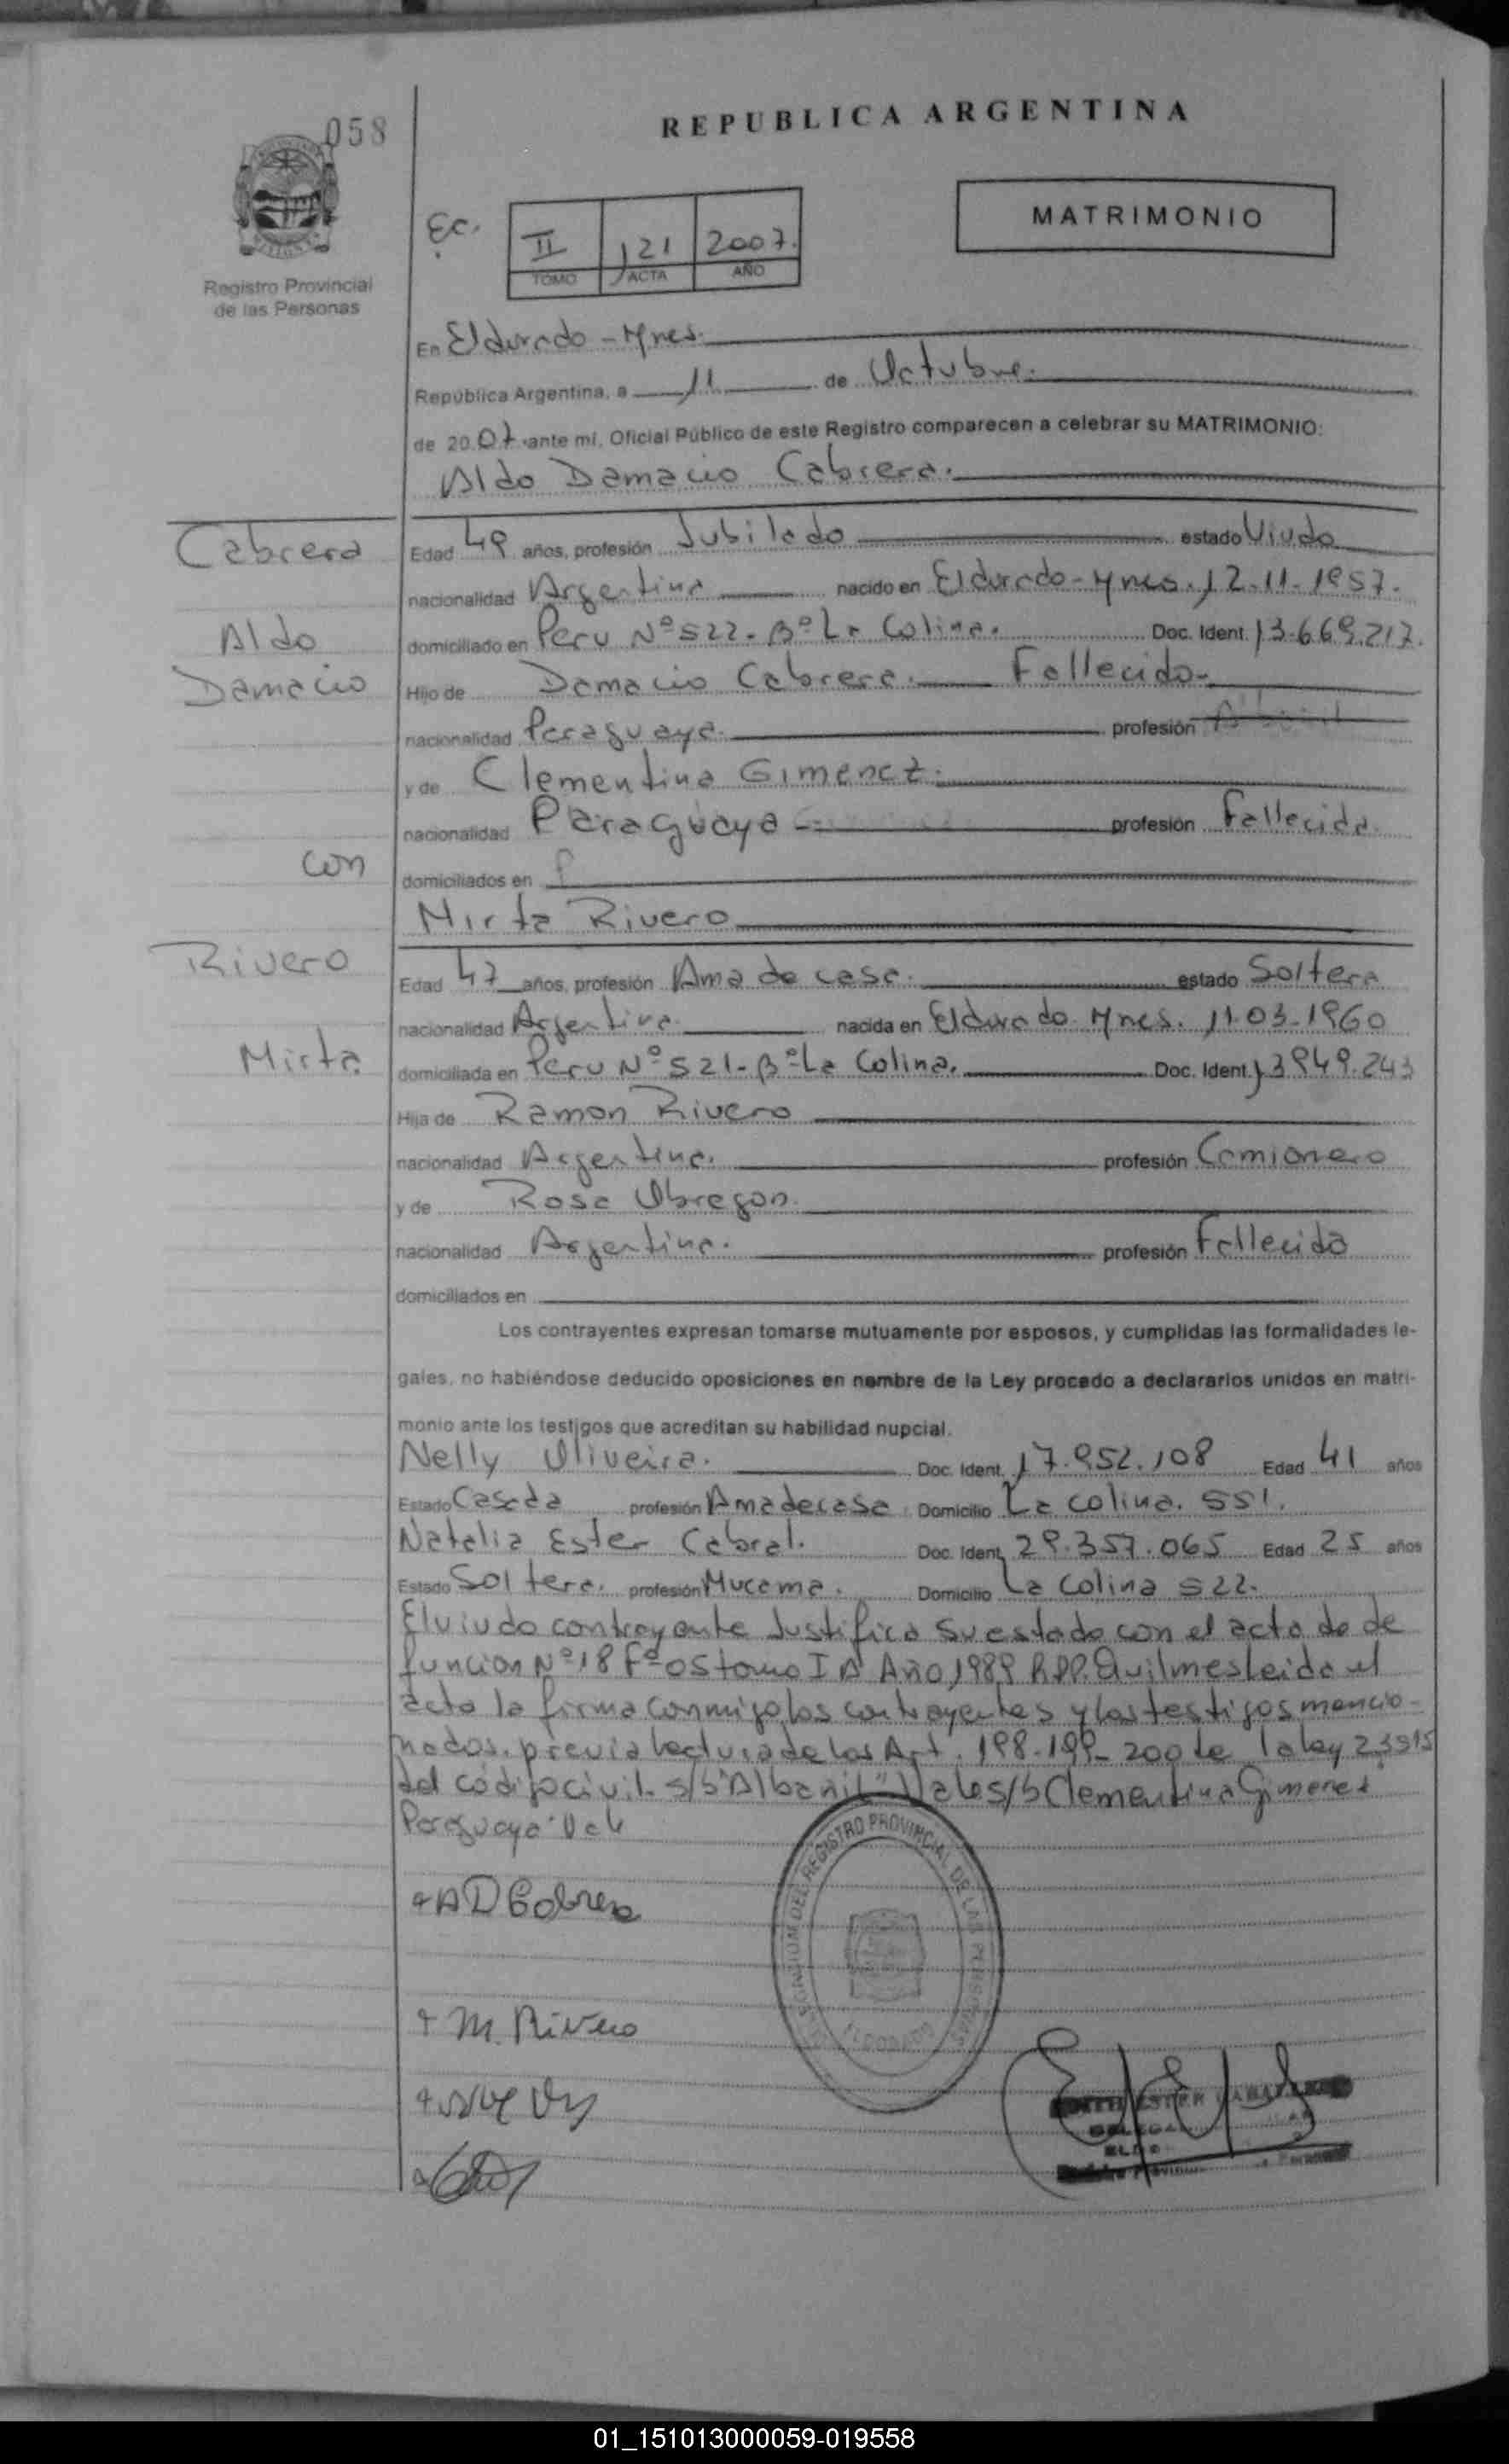 058
REPUBLICA ARGENTINA
Registro Provincial
de las Personas
Ec.
II 121 2007.
TOMO ACTA AÑO
MATRIMONIO
En Eldorado - Mnes.
República Argentina, a 11 de Octubre.
de 2007 ante mi, Oficial Público de este Registro comparecen a celebrar su MATRIMONIO:
Aldo Damacio Cabrera.
Cabrera
Aldo
Damacio
con
Rivero
Mirta
Edad 49 años, profesión Jubilado estado Viudo
nacionalidad Argentina nacido en Eldorado - Mnes. 12.11.1957.
domiciliado en Peru Nº 522. Bº La Colina. Doc. Ident. 13.669.217.
Hijo de Damacio Cabrera. Fallecido.
nacionalidad Paraguaya. profesión
y de Clementina Gimenez.
nacionalidad Paraguaya profesión Fallecida.
domiciliados en
Mirta Rivero
Edad 47 años, profesión Ama de casa. estado Soltera
nacionalidad Argentina. nacida en Eldorado Mnes. 11.03.1960
domiciliada en Peru Nº 521 - Bº La Colina. Doc. Ident. 13949.243
Hija de Ramon Rivero
nacionalidad Argentina. profesión Camionero
y de Rosa Obregon.
nacionalidad Argentina. profesión Fallecida
domiciliados en
Los contrayentes expresan tomarse mutuamente por esposos, y cumplidas las formalidades le-
gales, no habiéndose deducido oposiciones en nombre de la Ley procedo a declararlos unidos en matri-
monio ante los testigos que acreditan su habilidad nupcial.
Nelly Oliveira. Doc. Ident. 17.952.108 Edad 41 años
Estado Casada profesión Ama de casa Domicilio La Colina. 551.
Natalia Ester Cabral. Doc. Ident. 29.357.065 Edad 25 años
Estado Soltera. profesión Mucama. Domicilio La Colina 522.
El viudo contrayente Justifica su estado con el acta de de
funcion Nº 18 Fº 05 tomo I A Año 1989 R.P.P. Quilmes Leida el
acta la firma conmigo los contrayentes y los testigos mencio-
nados. previa lectura de los Art. 198-199-200 de la ley 23515
del código civil. s/b "Albañil" Vale s/b Clementina Gimenez
Paraguaya Vale
A D Cabrera
M. Rivero
REGISTRO PROVINCIAL DE LAS PERSONAS
ELDORADO
01_151013000059-019558